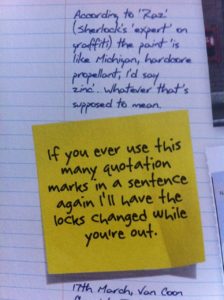 According to 'Raz'
(Sherlock's 'expert' on
graffiti) the paint is
like Michigan, hardcore
propellant, I'd say
zinc'. Whatever that's
supposed to mean.
If you ever use this
many quotation
marks in a sentence
again I'll have the
locks changed while
you're out.
17th March, Van Coon